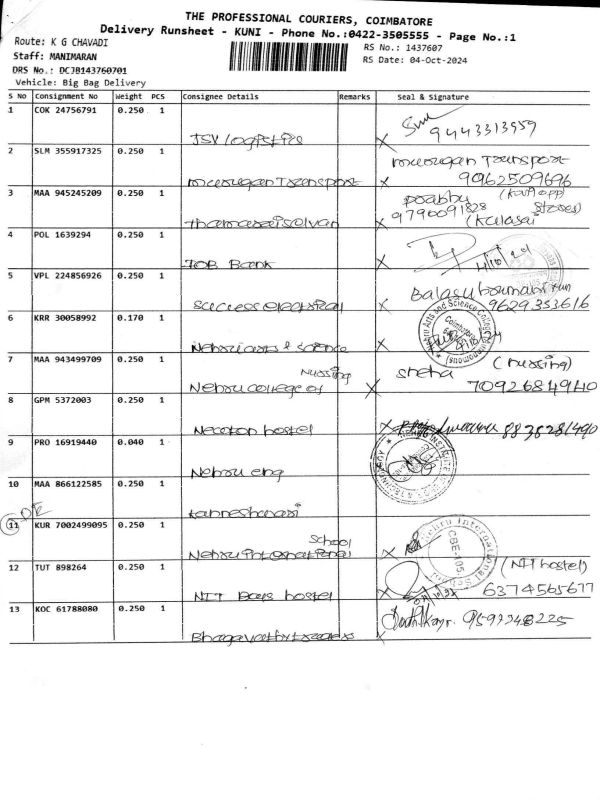 THE PROFESSIONAL COURIERS, COIMBATORE
Delivery Runsheet - KUNI - Phone No.:0422-3505555 - Page No.:1
Route: K G CHAVADI
RS No.: 1437607
Staff: MANIMARAN
RS Date: 04-Oct-2024
DRS No.: DCJB143760701
Vehicle: Big Bag Delivery
S No Consignment No Weight PCS Consignee Details Remarks Seal & Signature
1 COK 24756791 0.250 1
9443313959
JSV logistics
2 SLM 355917325 0.250 1
murugan Transport
murugan Transport 9096250 9696
3 MAA 945245209 0.250 1
prabhu
9790091828 Stores)
thamaraiselvan (Kalasai
4 POL 1639294 0.250 1
IOB Bank
5 VPL 224856926 0.250 1
success electrical 9629353616
6 KRR 30058992 0.170 1
Nehru arts & science
7 MAA 943499709 0.250 1
sneha (nursing)
Nursing
Nehru college of 7092684940
8 GPM 5372003 0.250 1
hostel 8838281490
9 PRO 16919440 0.040 1
Nehru eng
10 MAA 866122585 0.250 1
11 KUR 7002499095 0.250 1
School
Nehru International
Nehru International School
CBE-105
12 TUT 898264 0.250 1
(NIT hostel)
NIT Boys hostel 6374565677
13 KOC 61788080 0.250 1